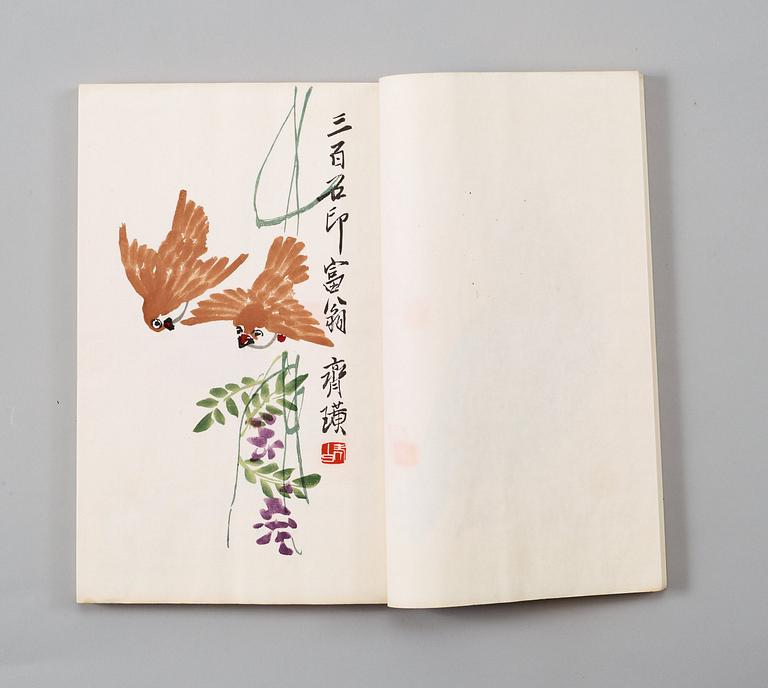 三百石印富翁 齊璜